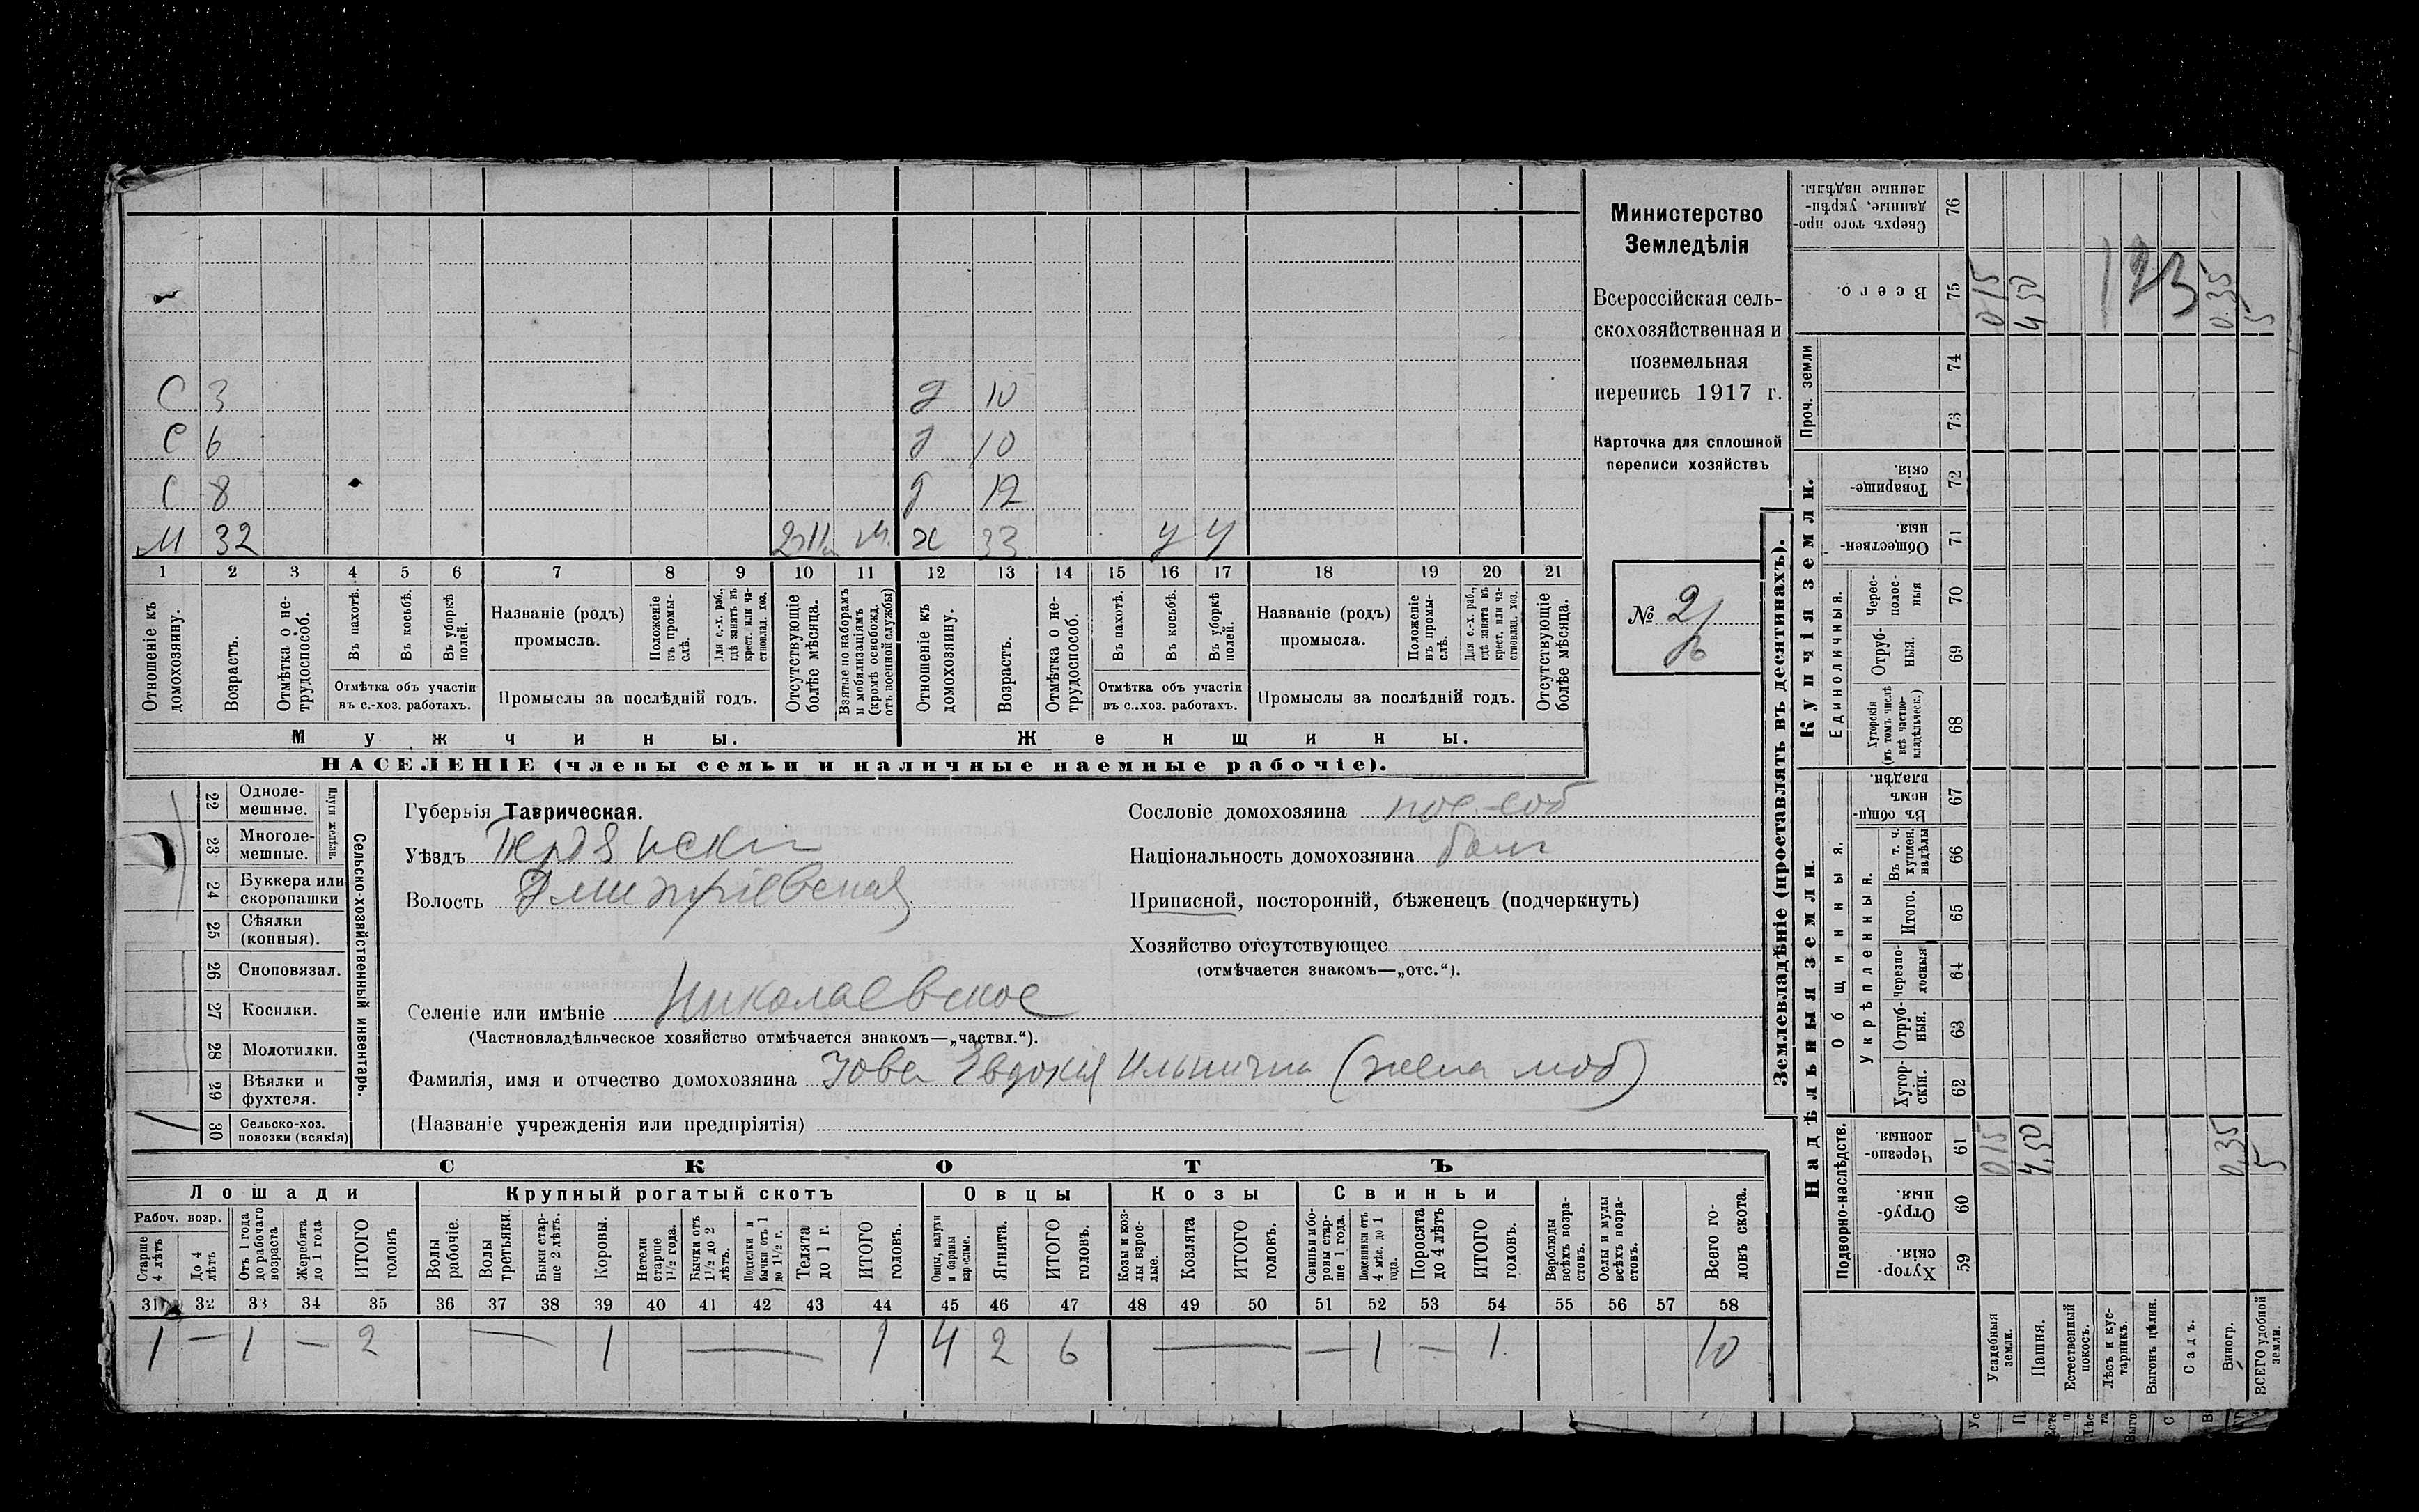 С 3 д 10
С 6 д 10
С 8 д 12
М 32 м. ж 33 у у
1 2 3 4 5 6 7 8 9 10 11 12 13 14 15 16 17 18 19 20 21
Отношеніе къ домохозяину.
Возрастъ.
Отмѣтка о не-трудоспособ.
Въ пахотѣ.
Въ косьбѣ.
Въ уборкѣ полей.
Отмѣтка объ участіи въ с.-хоз. работахъ.
Названіе (родъ) промысла.
Положеніе въ промы-слѣ.
Для с.-х. раб., гдѣ занятъ въ крест. или ча-стновлад. хоз.
Промыслы за послѣдній годъ.
Отсутствующіе болѣе мѣсяца.
Взятые по наборамъ и мобилизаціямъ (кромѣ освобожд. отъ военной службы)
Отношеніе къ домохозяину.
Возрастъ.
Отмѣтка о не-трудоспособ.
Въ пахотѣ.
Въ косьбѣ.
Въ уборкѣ полей.
Отмѣтка объ участіи въ с.-хоз. работахъ.
Названіе (родъ) промысла.
Положеніе въ промы-слѣ.
Для с.-х. раб., гдѣ занята въ крест. или ча-стновлад. хоз.
Промыслы за послѣдній годъ.
Отсутствующіе болѣе мѣсяца.
Мужчины. Женщины.
НАСЕЛЕНІЕ (члены семьи и наличные наемные рабочіе).
Министерство
Земледѣлія
Всероссійская сель-
скохозяйственная и
поземельная
перепись 1917 г.
Карточка для сплошной
переписи хозяйствъ
№ 2
22 Одноле-мешные.
23 Многоле-мешные.
Плуги желѣзн.
24 Буккера или скоропашки
25 Сѣялки (конныя).
26 Сноповязал.
27 Косилки.
28 Молотилки.
29 Вѣялки и фухтеля.
30 Сельско-хоз. повозки (всякія)
Сельско-хозяйственный инвентарь.
Губернія Таврическая.
Уѣздъ Бердянскій
Волость Дмитріевская
Селеніе или имѣніе Николаевское
(Частновладѣльческое хозяйство отмѣчается знакомъ—„частвл.“).
Фамилія, имя и отчество домохозяина Іова Евдокія Ильинична (жена моб)
(Названіе учрежденія или предпріятія)
Сословіе домохозяина пос.-соб
Національность домохозяина болг
Приписной, посторонній, бѣженецъ (подчеркнуть)
Хозяйство отсутствующее
(отмѣчается знакомъ—„отс.“).
СКОТЪ
Лошади Крупный рогатый скотъ Овцы Козы Свиньи
Рабоч. возр.
Старше 4 лѣтъ
До 4 лѣтъ
Отъ 1 года до рабочаго возраста
Жеребята до 1 года
ИТОГО головъ
Волы рабочіе.
Волы третьяки.
Быки стар-ше 2 лѣтъ.
Коровы.
Нетели старше 1½ года.
Бычки отъ 1½ до 2 лѣтъ.
Подтелки и бычки отъ 1 до 1½ г.
Телята до 1 г.
ИТОГО головъ.
Овцы, валухи и бараны взрослые.
Ягнята.
ИТОГО головъ.
Козы и коз-лы взрос-лые.
Козлята
ИТОГО головъ.
Свиньи и бо-ровы стар-ше 1 года.
Подсвинки отъ 4 мѣс. до 1 года.
Поросята до 4 лѣтъ
ИТОГО головъ.
Верблюды всѣхъ возра-стовъ.
Ослы и мулы всѣхъ возра-стовъ.
Всего го-ловъ скота.
31 32 33 34 35 36 37 38 39 40 41 42 43 44 45 46 47 48 49 50 51 52 53 54 55 56 57 58
1 — 1 — 2 — 1 — 1 4 2 6 — — 1 — 1 10
Землевладѣніе (проставлять въ десятинахъ).
Купчія земли.
Надѣльныя земли.
Сверхъ того про-данные, укрѣп-ленные надѣлы. 76
Всего. 75 0 15 4 50 123 0.35 5
Проч. земли 74 73
Товарище-скія. 72
Обществен-ныя. 71
Единоличныя.
Черес-полос-ныя 70
Отруб-ныя. 69
Хуторскія (въ томъ числѣ всѣ частно-владѣльческ.) 68
Общинныя.
Въ общи-номъ владѣн. 67
Укрѣпленныя.
Въ т. ч. куплен. надѣлы 66
Итого. 65
Черезпо-лосныя 64
Отруб-ныя. 63
Хутор-скія. 62
Подворно-наслѣдств.
Черезпо-лосныя 61 0 15 4,50 0,35 5
Отруб-ныя. 60
Хутор-скія. 59
Усадебныя земли.
Пашня.
Естественный покосъ.
Лѣсъ и кус-тарникъ.
Выгонъ цѣлин.
Садъ.
Виногр.
ВСЕГО удобной земли.